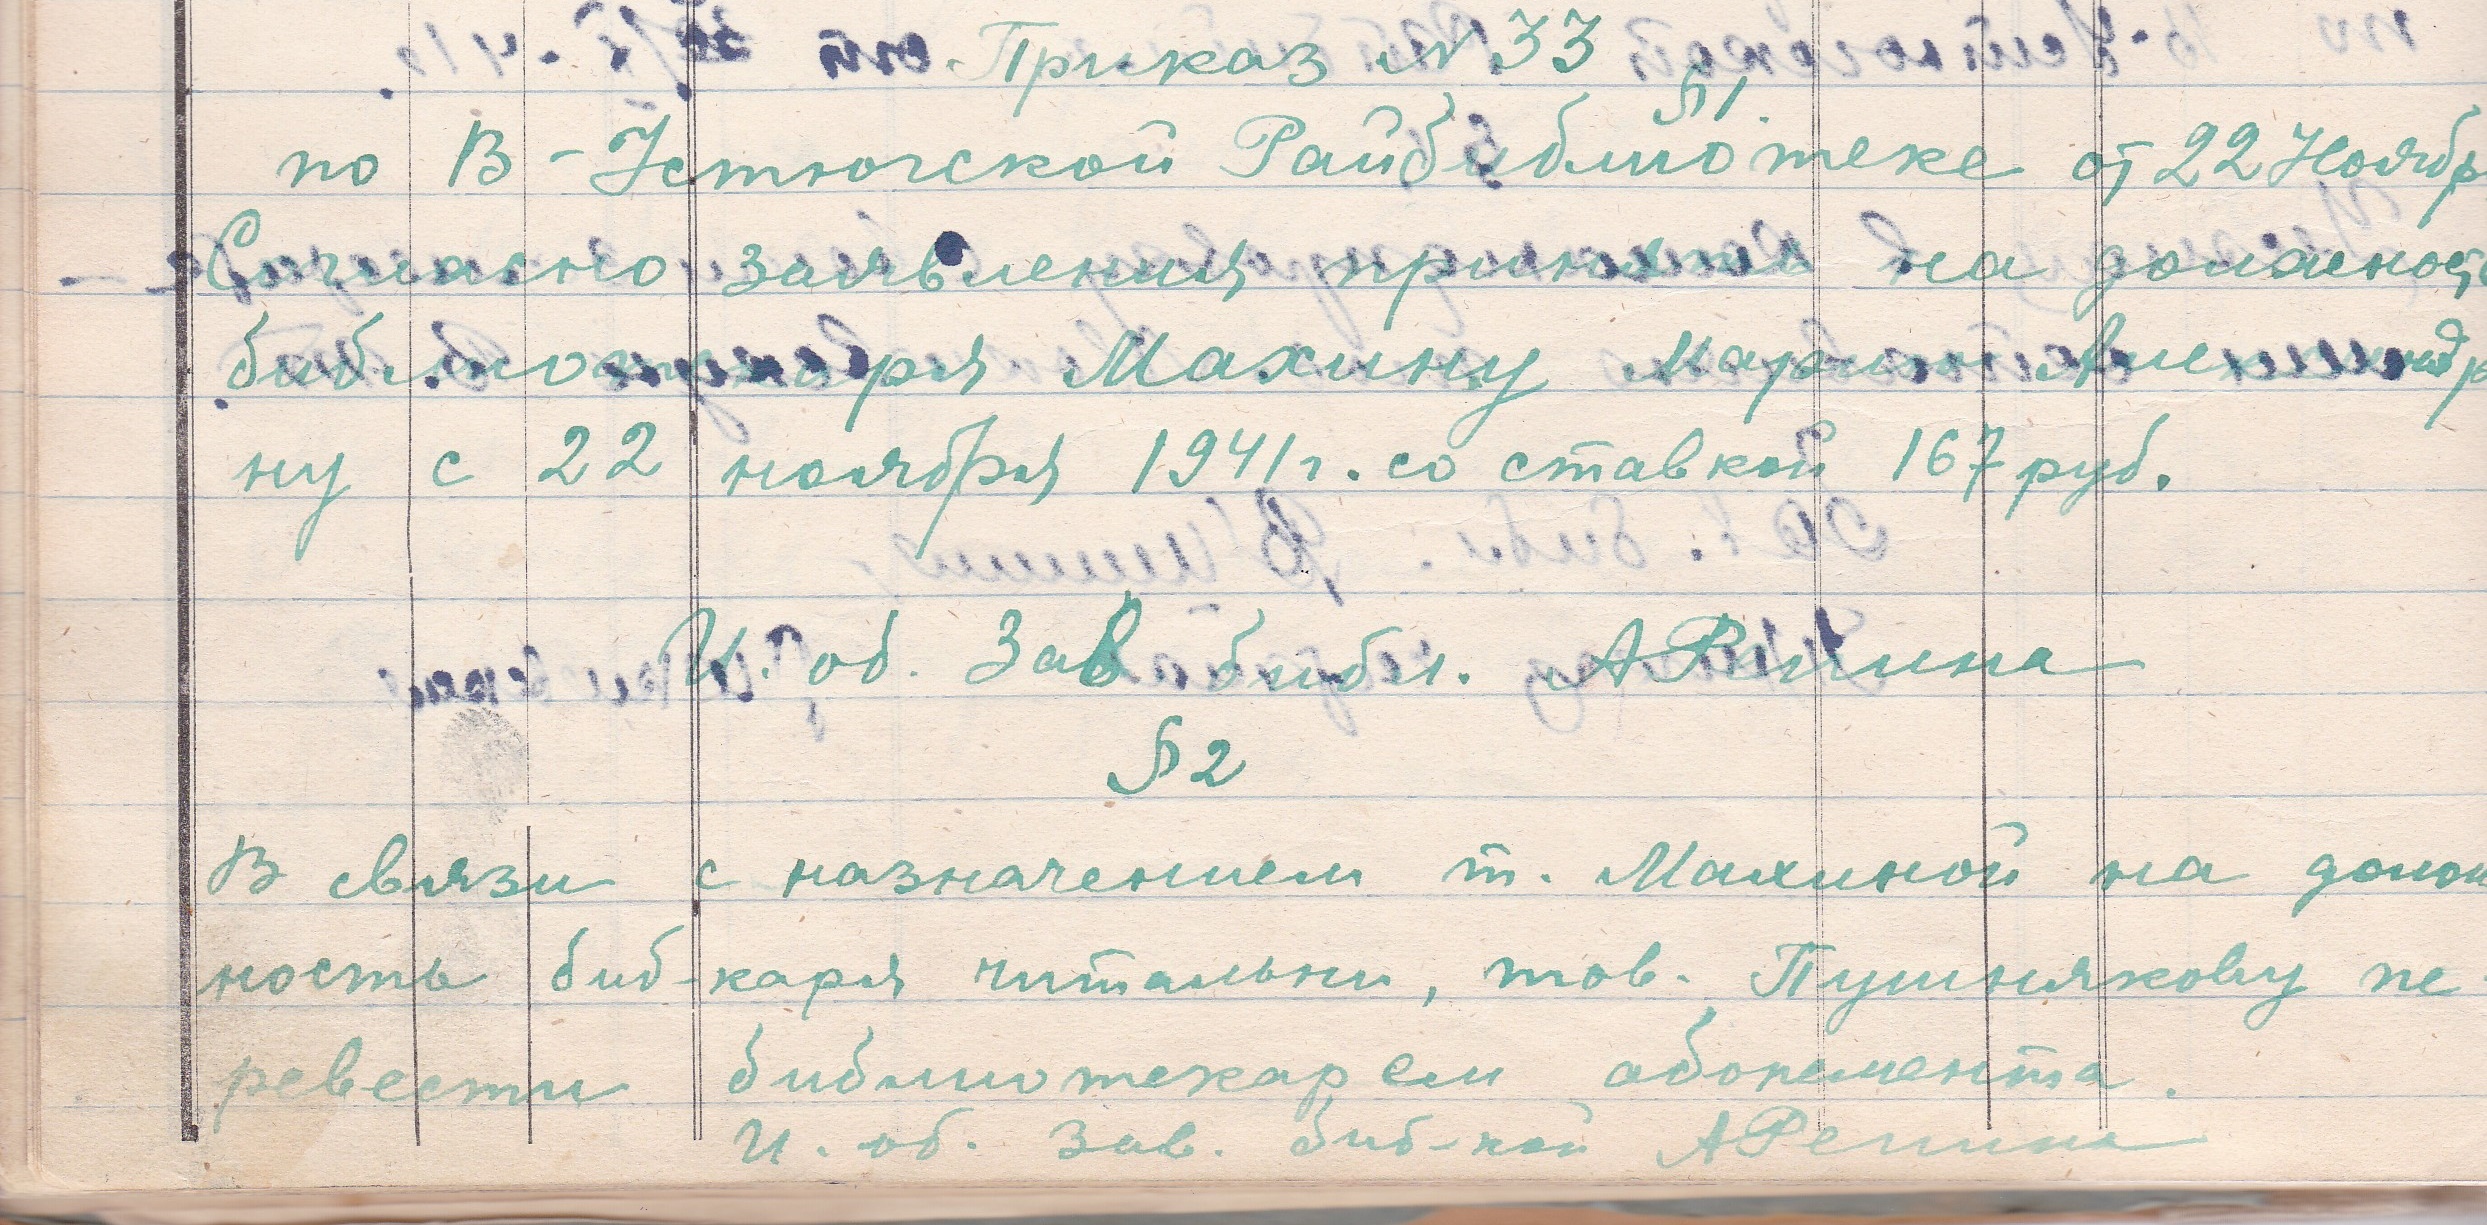 Приказ N 33
§ 1.
по В-Устюгской Райбиблиотеке от 22 Ноябр
Согласно заявления принять на должность
библиотекаря Махину Марию Александр
ну с 22 ноября 1941 г. со ставкой 167 руб.
И. об. Зав библ. АРепина
§ 2
В связи с назначением т. Махиной на долж
ность биб-каря читальни, тов. Пушнякову пе
ревести библиотекарем абонемента.
И. об. Зав. биб-кой АРепина